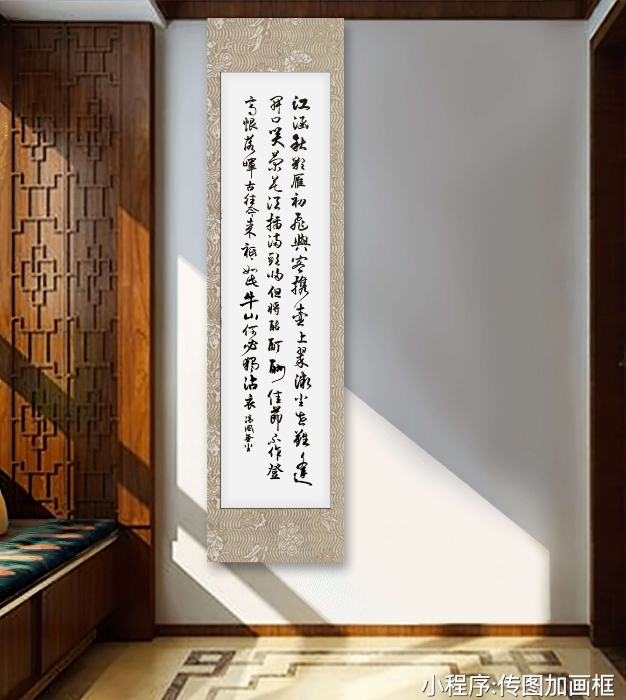 江涵秋影雁初飛與客攜壺上翠微尘世難逢
開口笑菊花須插滿頭歸但將酩酊酬佳節不作登
高恨落暉古往今來祇如此牛山何必獨沾衣
小程序:传图加画框